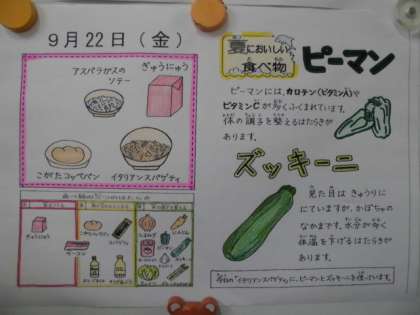 9月22日(金)
アスパラガスのソテー
ぎゅうにゅう
こがたコッペパン
イタリアンスパゲティ
ぎゅうにゅう
ベーコン
スパゲティ
夏においしい食べ物
ピーマン
ピーマンには、カロテン(ビタミンA)や
ビタミンCが多くふくまれています。
体の調子を整えるはたらきが
あります。
ズッキーニ
見た目はきゅうりに
にていますが、かぼちゃの
なかまです。水分が多く
体温を下げるはたらきが
あります。
"イタリアンスパゲティ"に、ピーマンとズッキーニを使っています。